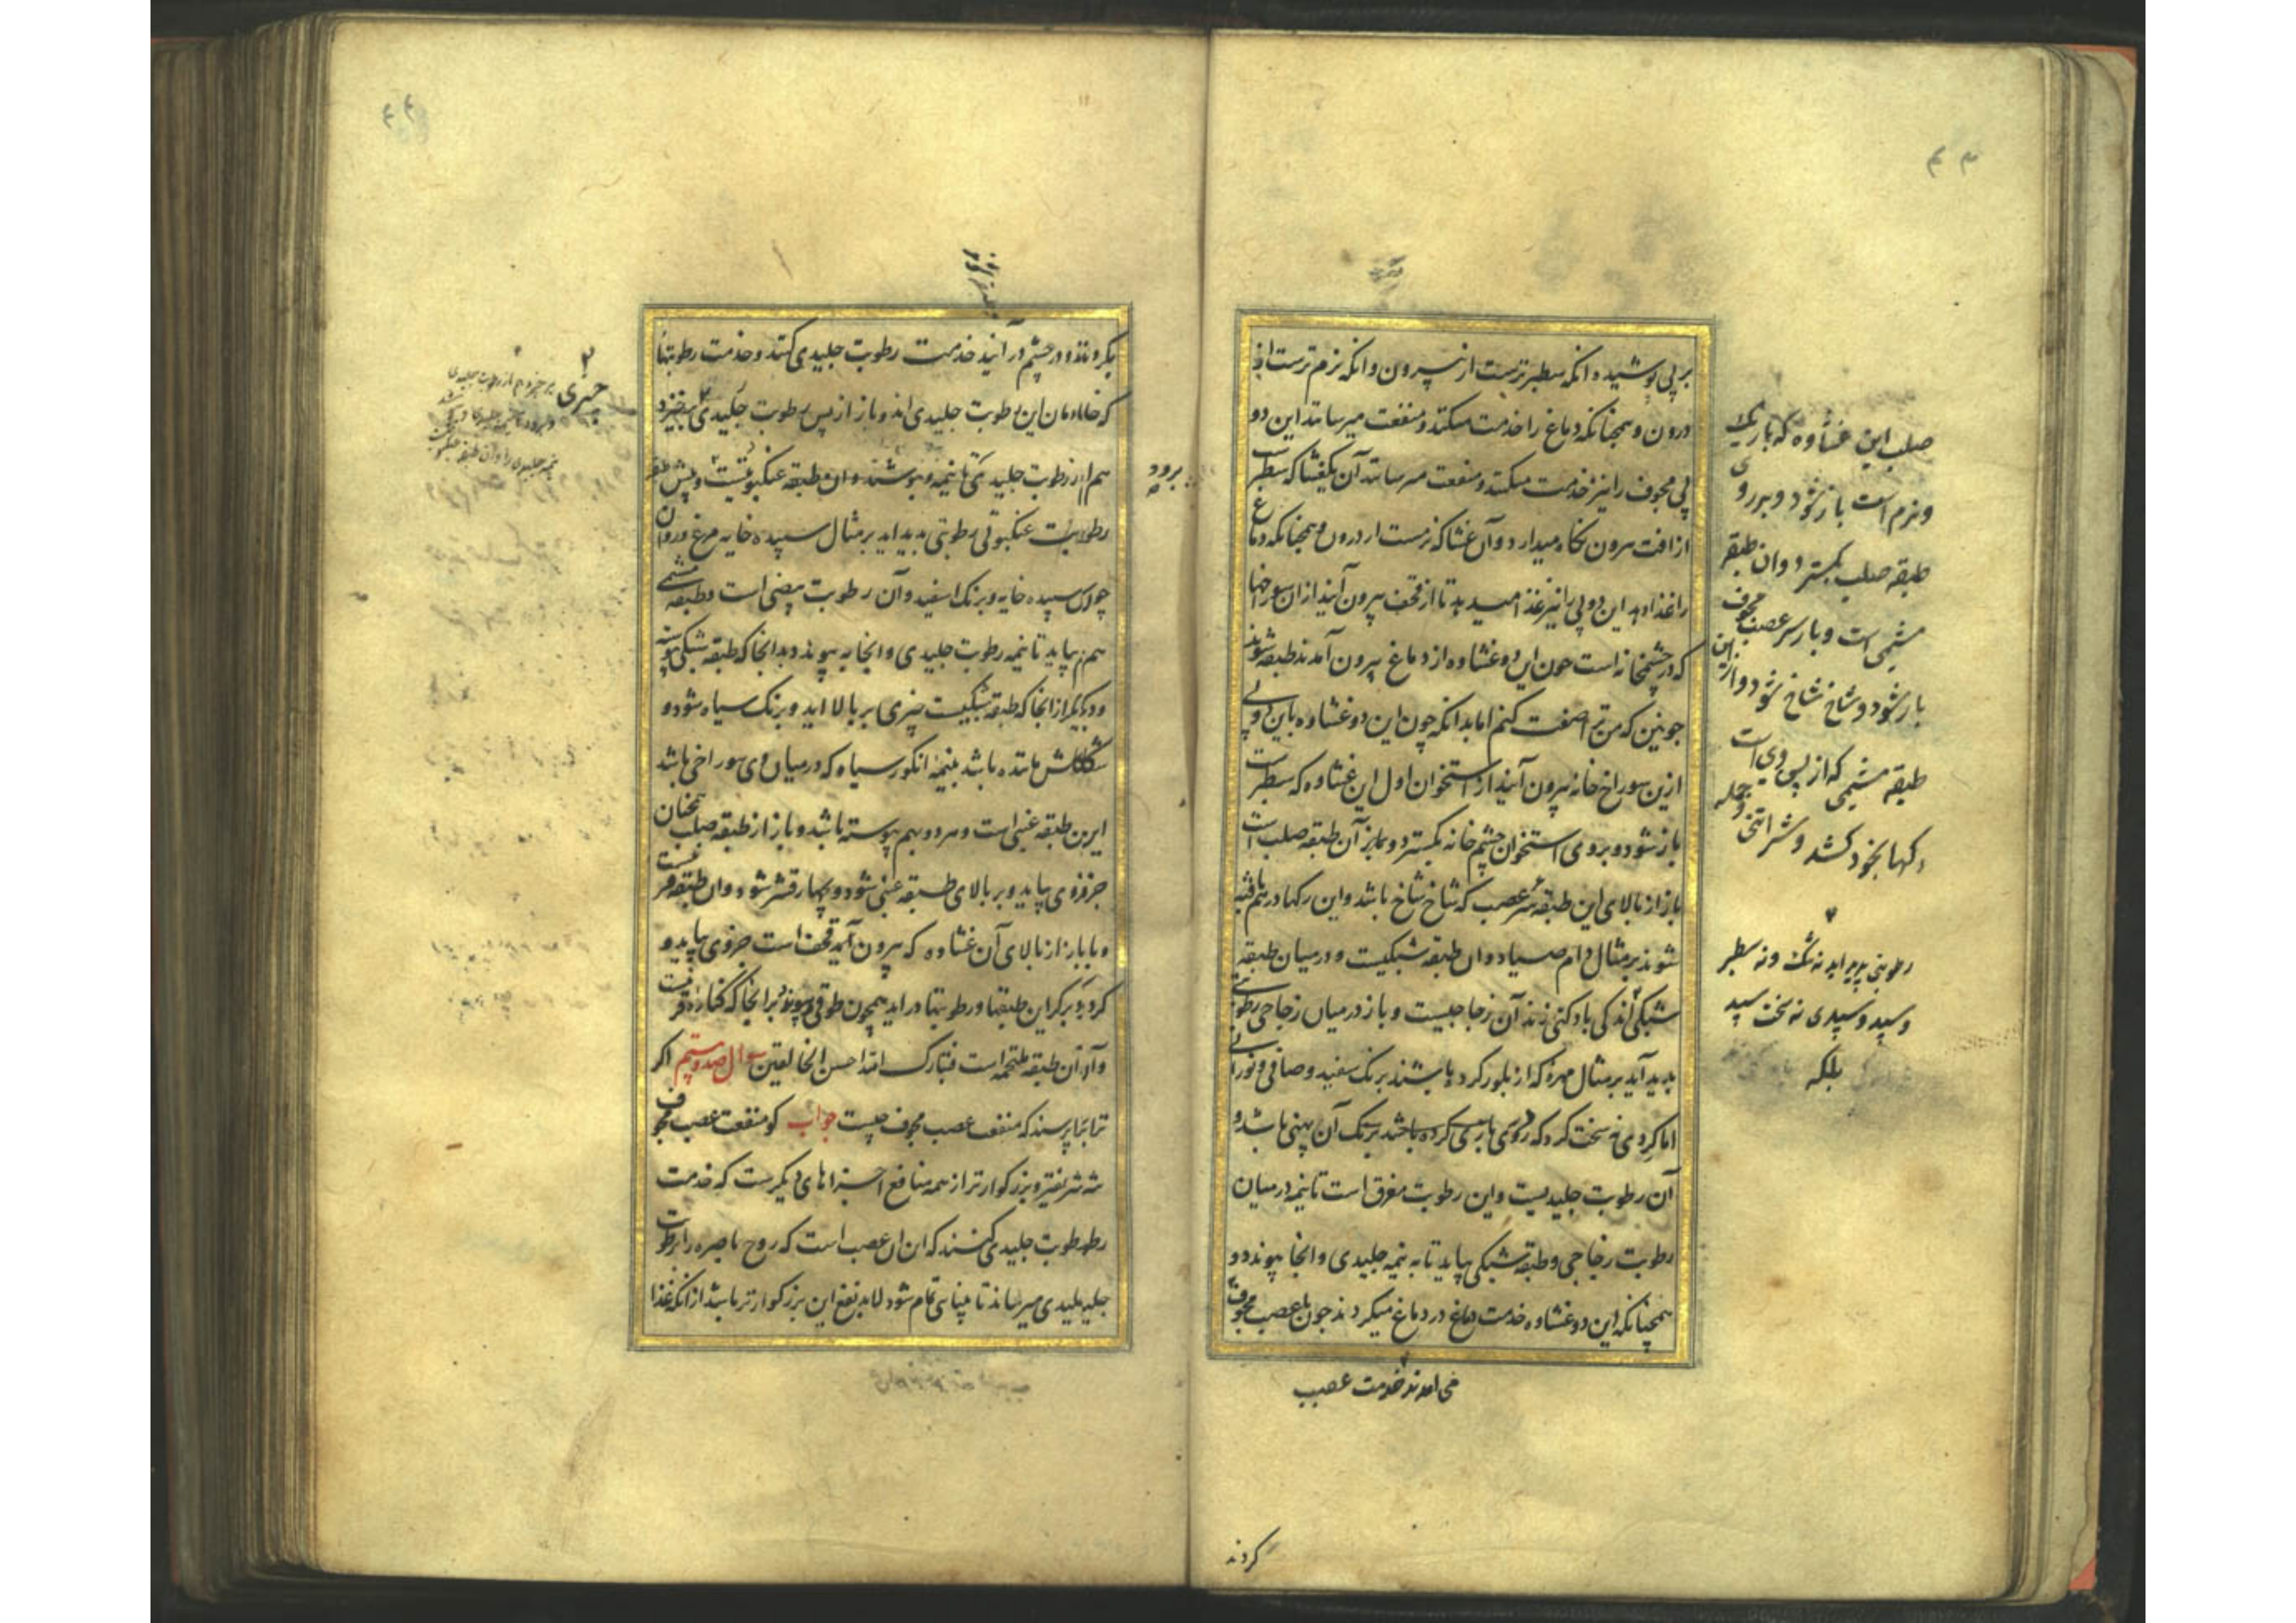 بر پی پوشیده انکه سطبرترست از سپرون وانکه نرم ترست از
درون و همچنانکه دماغ را خدمت میکنند و منفعت میرسانند این دو
پی مجوف را نیز خدمت میکنند و منفعت میرسانند آن یکغشا که سطبرست
از افت بیرون نکاه میدارد و آن غشا که نرمست از درون و همچنانکه دماغ
را غذا دهد این دو پی را نیز غذا میدهد تا از قحف بیرون آیند ازان سوراخها
که در چشمخانه است چون این دو غشاوه از دماغ بیرون آمدند طبقه شوند
چونین که من ترا صفت کنم اما بدانکه چون این دو غشاوه با این دو پی
ازین سوراخ خانه بیرون آیند از استخوان اول این غشاوه که سطبرست
باز شود و بر روی استخوان چشم خانه بکسترد و بماند آن طبقه صلب است
باز از بالای این طبقه سر عصب که شاخ شاخ باشد و این رکها در هم بافته
شوند بر مثال دام صیاد و ان طبقه شبکیست و در میان طبقه
شبکی اندکی بادکنی زند آن زجاجیست و باز در میان زجاجی رطوبتی
پدید آید بر مثال مهره که از بلور کرده باشند برنک سفید و صافی و نورانی
اما کردی نه سخت کرد که روی باریکی کرده باشد برنک آن پهنی باشد و
آن رطوبت جلیدیست و این رطوبت مغرق است تا نیمه در میان
رطوبت زجاجی و طبقه شبکی بیاید تا به نیمه جلیدی و انجا پیوندد و
همچنانکه این دو غشاوه خدمت دماغ در دماغ میکردند چون با عصب مجوف
می امدند خدمت عصب
کردند
صلب این غشاوه که باریک
و نرم است باز شود و بر روی
طبقه صلب بکسترد وان طبقه
مشیمی است و باز سر عصب مجوف
باز شود و شاخ شاخ شود و از این
طبقه مشیمی که از پس وی است
رکها بخود کشد
رطوبتی پدید اید نه تنک و نه سطبر
و سپید و سپیدی نه سخت سپید
بلکه
بکردند و در چشم در آیند خدمت رطوبت جلیدی کنند و خدمت رطوبتها
که خادمان این رطوبت جلیدی اند و باز از پس رطوبت جلیدی برخیزد
هم از رطوبت جلیدی تا نیمه و بپوشند و ان طبقه عنکبوتیست و پیش طبقه
رطوبت عنکبوتی رطوبتی پدید اید بر مثال سپیده خایه مرغ و روان
چون سپیده خایه و برنک اسفید و آن رطوبت بیضی است و طبقه مشیمی
هم بیاید تا نیمه رطوبت جلیدی و انجا به پیوندد بدانجا که طبقه شبکی پیوسته
و دیکر از انجا که طبقه شبکیست چیزی بر بالا اید و برنک سیاه شود و
شکلش مانده باشد بنیمه انکور سیاه که در میان وی سوراخی باشد
این طبقه عنبی است و هر دو بهم پیوسته باشد و باز از طبقه صلب همچنان
جزوی بیاید و بر بالای طبقه عنبی شود و بچهار قشر شود و ان طبقه قرنیست
و باز از بالای آن غشاوه که بیرون آمده قحف است جزوی بیاید و
کرد بر کرد این طبقها و رطوبتها در اید همچون طوقی و پیوندد بر انجا که کناره قرنیست
و آن طبقه ملتحمه است فتبارک الله احسن الخالقین سوال صد و ستم اکر
ترا بپرسند که منفعت عصب مجوف چیست جواب کو منفعت عصب مجوف
شریفتر و بزرکوارتر از همه منافع اجزاهای دیکرست که خدمت
رطوبت جلیدی کنند که این ان عصب است که روح باصره را برطوبت
جلیدی میرساند تا بینایی تمام شود لابد نفع این بزرکوارتر باشد از انکه غذا
برود
چیزی